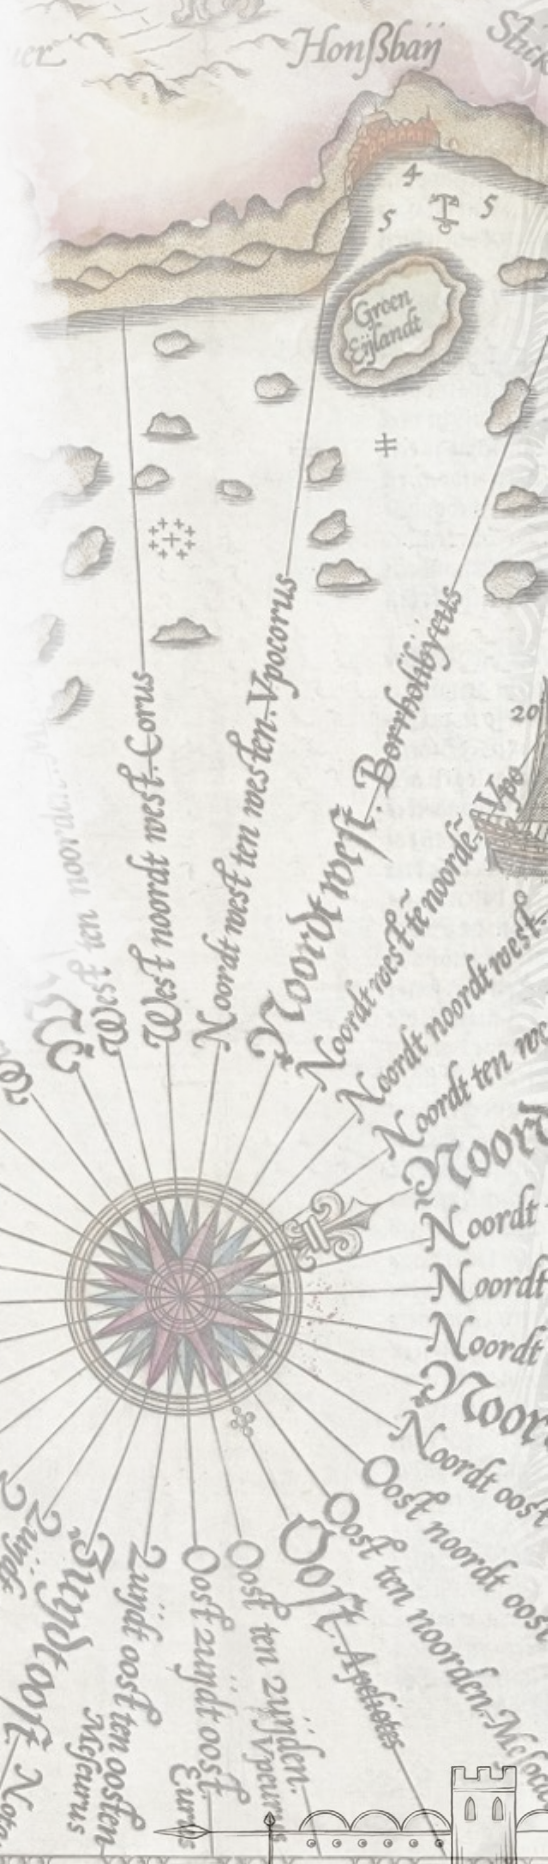 Honßbaij
4
5 5
Groen
Eijlandt
20
West ten noorden
West noordt west. Corus
Noordt west ten westen. Vpocorus
Noordt west Borrholibycus
Noordt west tē noordē. Vpo
Noordt noordt west
Noordt ten we
Noord
Noordt
Noordt
Noordt
Noor
Noordt oost
Oost noordt oost
Oost ten noorden.
Oost. Apeliotes
Oost ten zuijden.
Oost zuijdt oost
Eurus
Zuijdt oost ten oosten
Zuijdtoost